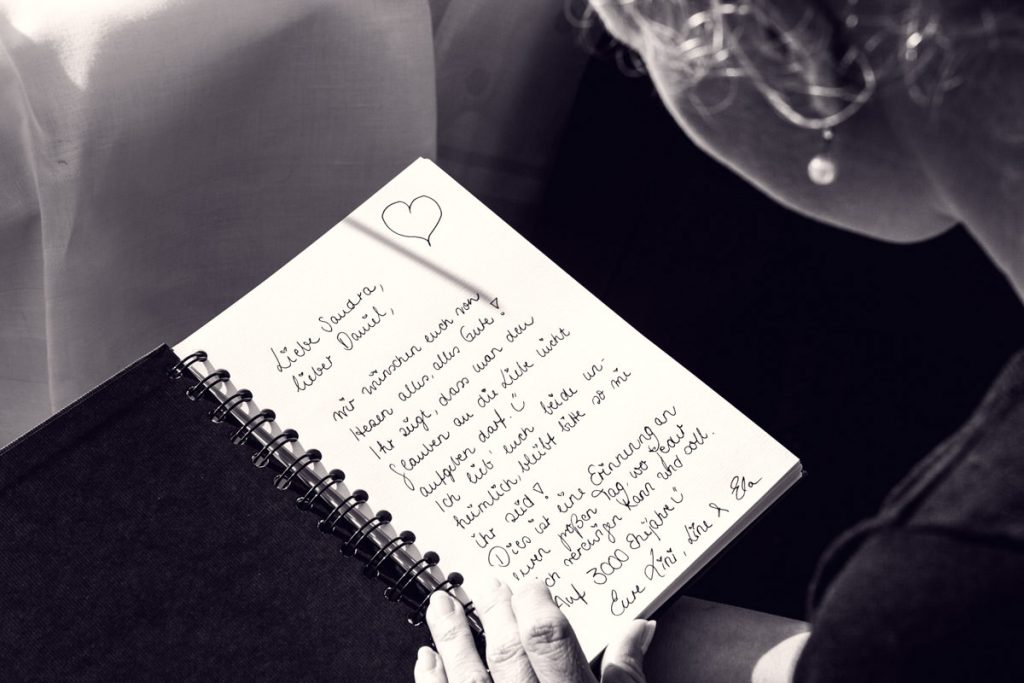 Liebe Sandra,
lieber Daniel,
wir wünschen euch von
Herzen alles, alles Gute!
Ihr zeigt, dass man den
Glauben an die Liebe nicht
aufgeben darf.
Ich lieb' euch beide un-
heimlich, bleibt bitte so wie
ihr seid!
Dies ist eine Erinnerung an
euren großen Tag, wo jeder
sich verewigen kann und soll.
Auf 3000 Ehejahre
Eure Lini, Line & Ela